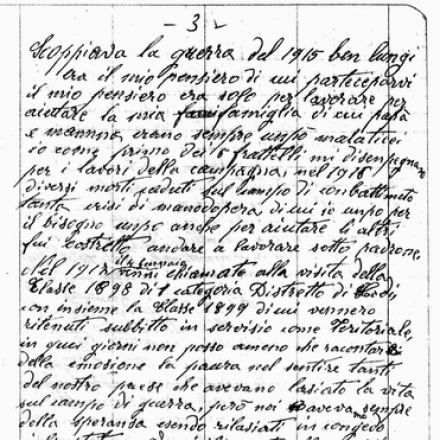 - 3 -
Scoppiava la guerra del 1915 ben lungi
era il mio pensiero di cui parteciparvi
il mio pensiero era solo per lavorare per
aiutare la mia famiglia di cui papà
e mamma erano sempre unpò malaticci
io come primo dei 5 frattelli mi disenpegnavo
per i lavori della campagna, nel 1916
diversi morti caduti sul campo di conbattimento
tanta crisi di manodopera di cui io unpo per
il bisogno unpo anche per aiutare li altri
fui costretto andare a lavorare sotto padrone,
Nel 1917 il 2 Gennaio
venni chiamato alla visita della
Classe 1898 di 1 categoria Distretto di
con insieme la Classe 1899 di cui vennero
ritenuti subbitto in servisio come Teritoriale,
in quei giorni non posso ameno che racontare
della emosione la paura nel sentire tanti
del nostro paese che avevano lasiato la vita
sul campo di guerra, però noi avevamo sempre
della speransa esendo rilasiati in congedo